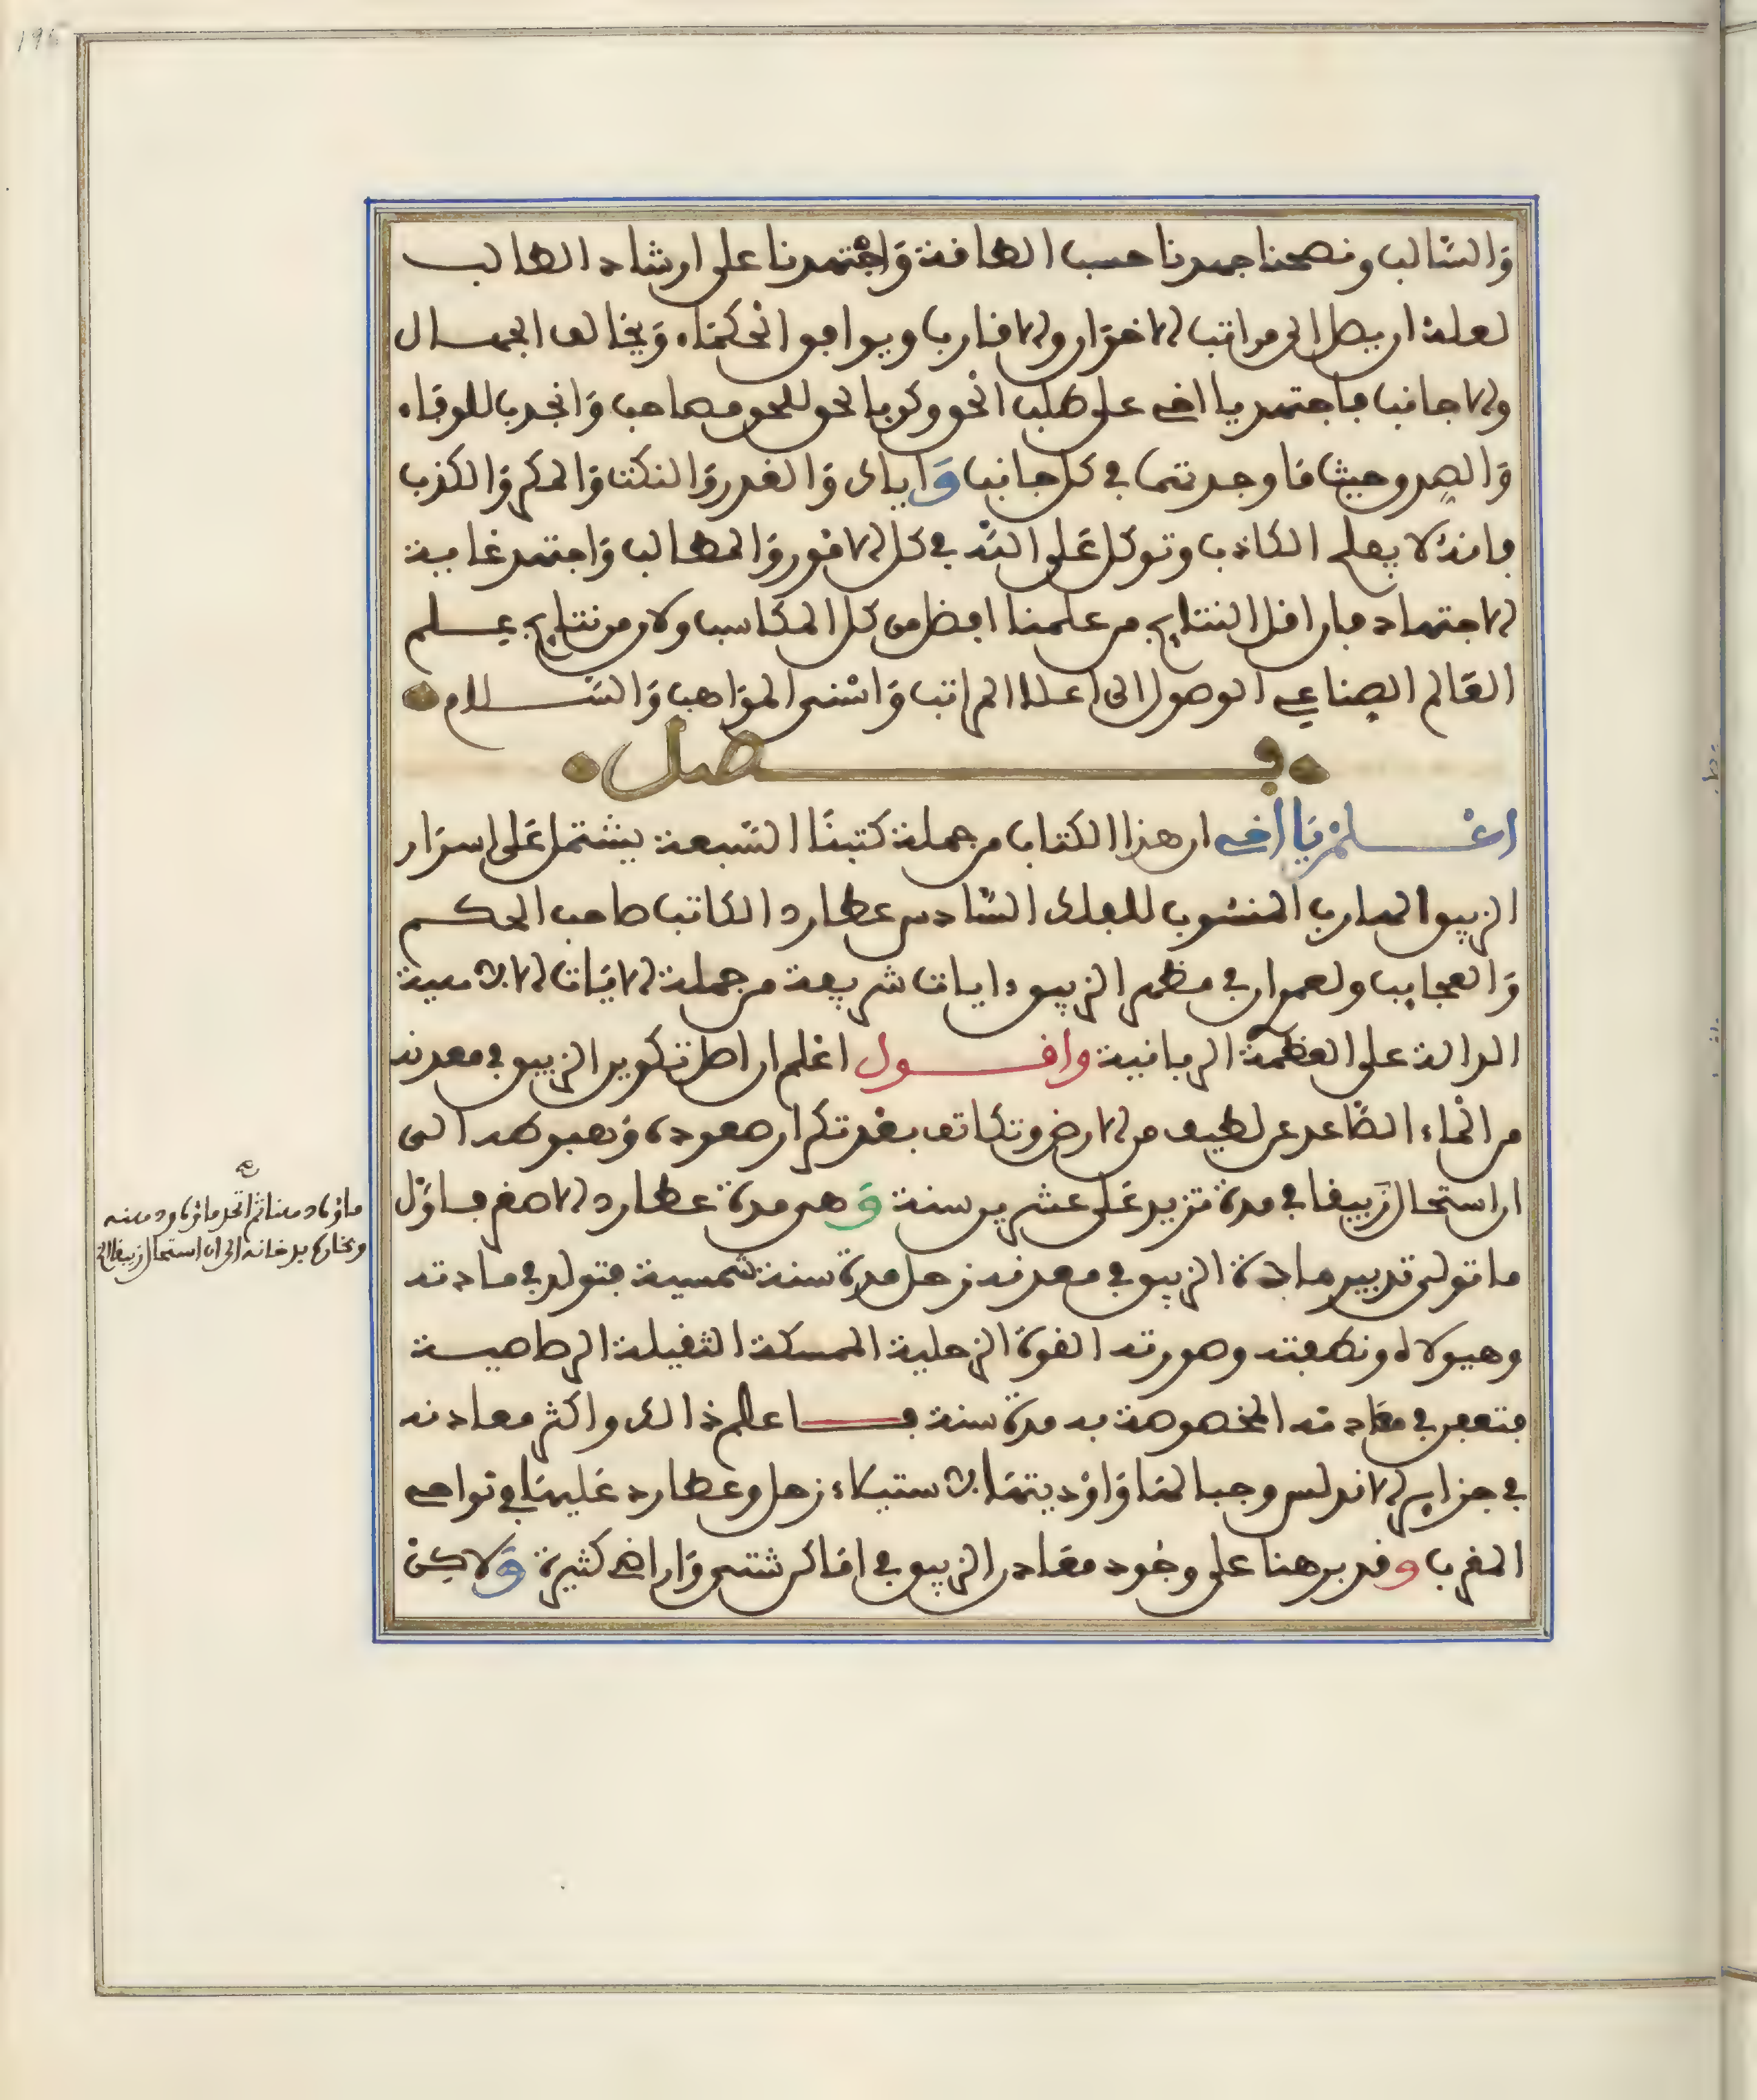 والسالب ونصحنا جهدنا حسب الطاقة واجتهدنا على ارشاد الطالب
لعله ان يصل الى مراتب الاخوان والاقارب ويوافق الحكماء ويخالف الجهال
والاجانب فاجتهد يا اخي على طلب الحق وكن بالحق للحق مصاحب وانجدب للوفاء
والصدق حيث ما وجدتهما في كل جانب واياك والغدر والنكث والمكر والكذب
فانه لا يفلح الكاذب وتوكل على الله في كل الامور والمطالب واجتهد غاية
الاجتهاد فان اقل النتايج من علمنا افضل من كل المكاسب ولان من نتايج علم
العالم الصناعي الوصول الى اعلا المراتب واسنى المواهب والسلام
فصل
اعلم يا اخي ان هذا الكتاب من جملة كتبنا السبعة يشتمل على اسرار
الزيبق الهارب المنسوب للفلك السادس عطارد الكاتب صاحب الحكم
والعجايب ولعمر ان في مظهر الزيبق دايات شريفة من جملة الايات الالاهية
الدالة على العظمة الربانية واقول اعلم ان اصل تكوين الزيبق في معدنه
من الماء الصاعد عن لطيف من الارض وتكاثف بعد تكرار صعوده وهبوطه الى
ان استحال زيبقا في مدة تزيد على عشرين سنة وهي مدة عطارد الاصغر فاول
ما تولى تدبير مادة الزيبق في معدنه زحل مدة سنة شمسية فتولد في مادته
وهيولاه ونطفته وصورته القوة الزحلية الممسكة الثقيلة الرصاصية
فتعفن في مادته المخصوصة به مدة سنة فاعلم ذالك واكثر معادنه
في جزاير الاندلس وجبالها واوديتها لاستيلاء زحل وعطارد عليها في نواحي
المغرب وقد برهنا على وجود معادن الزيبق في اماكن شتى واراضي كثيرة ولاكن